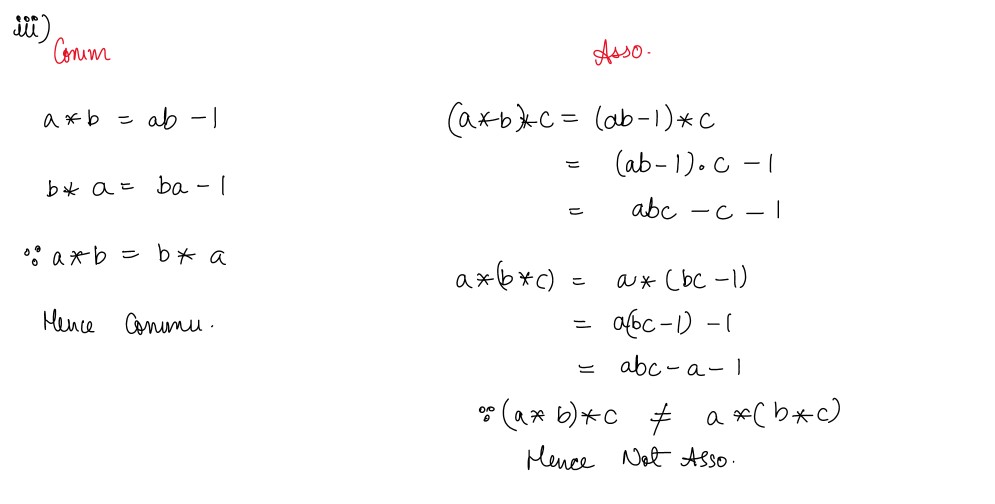 iii)
Comm
a * b = ab - 1
b * a = ba - 1
∵ a * b = b * a
Hence Commu.
Asso.
(a * b) * c = (ab - 1) * c
= (ab - 1) · c - 1
= abc - c - 1
a * (b * c) = a * (bc - 1)
= a(bc - 1) - 1
= abc - a - 1
∵ (a * b) * c ≠ a * (b * c)
Hence Not Asso.